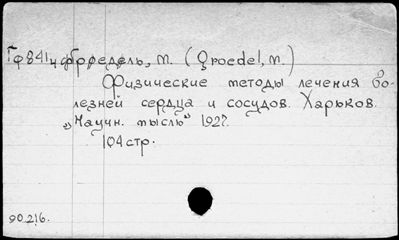 Гр841 Гредель, М. (Groedel, M.)
Физические методы лечения бо-
лезней сердца и сосудов. Харьков.
„Научн. мысль" 1927.
104 стр.
90216.